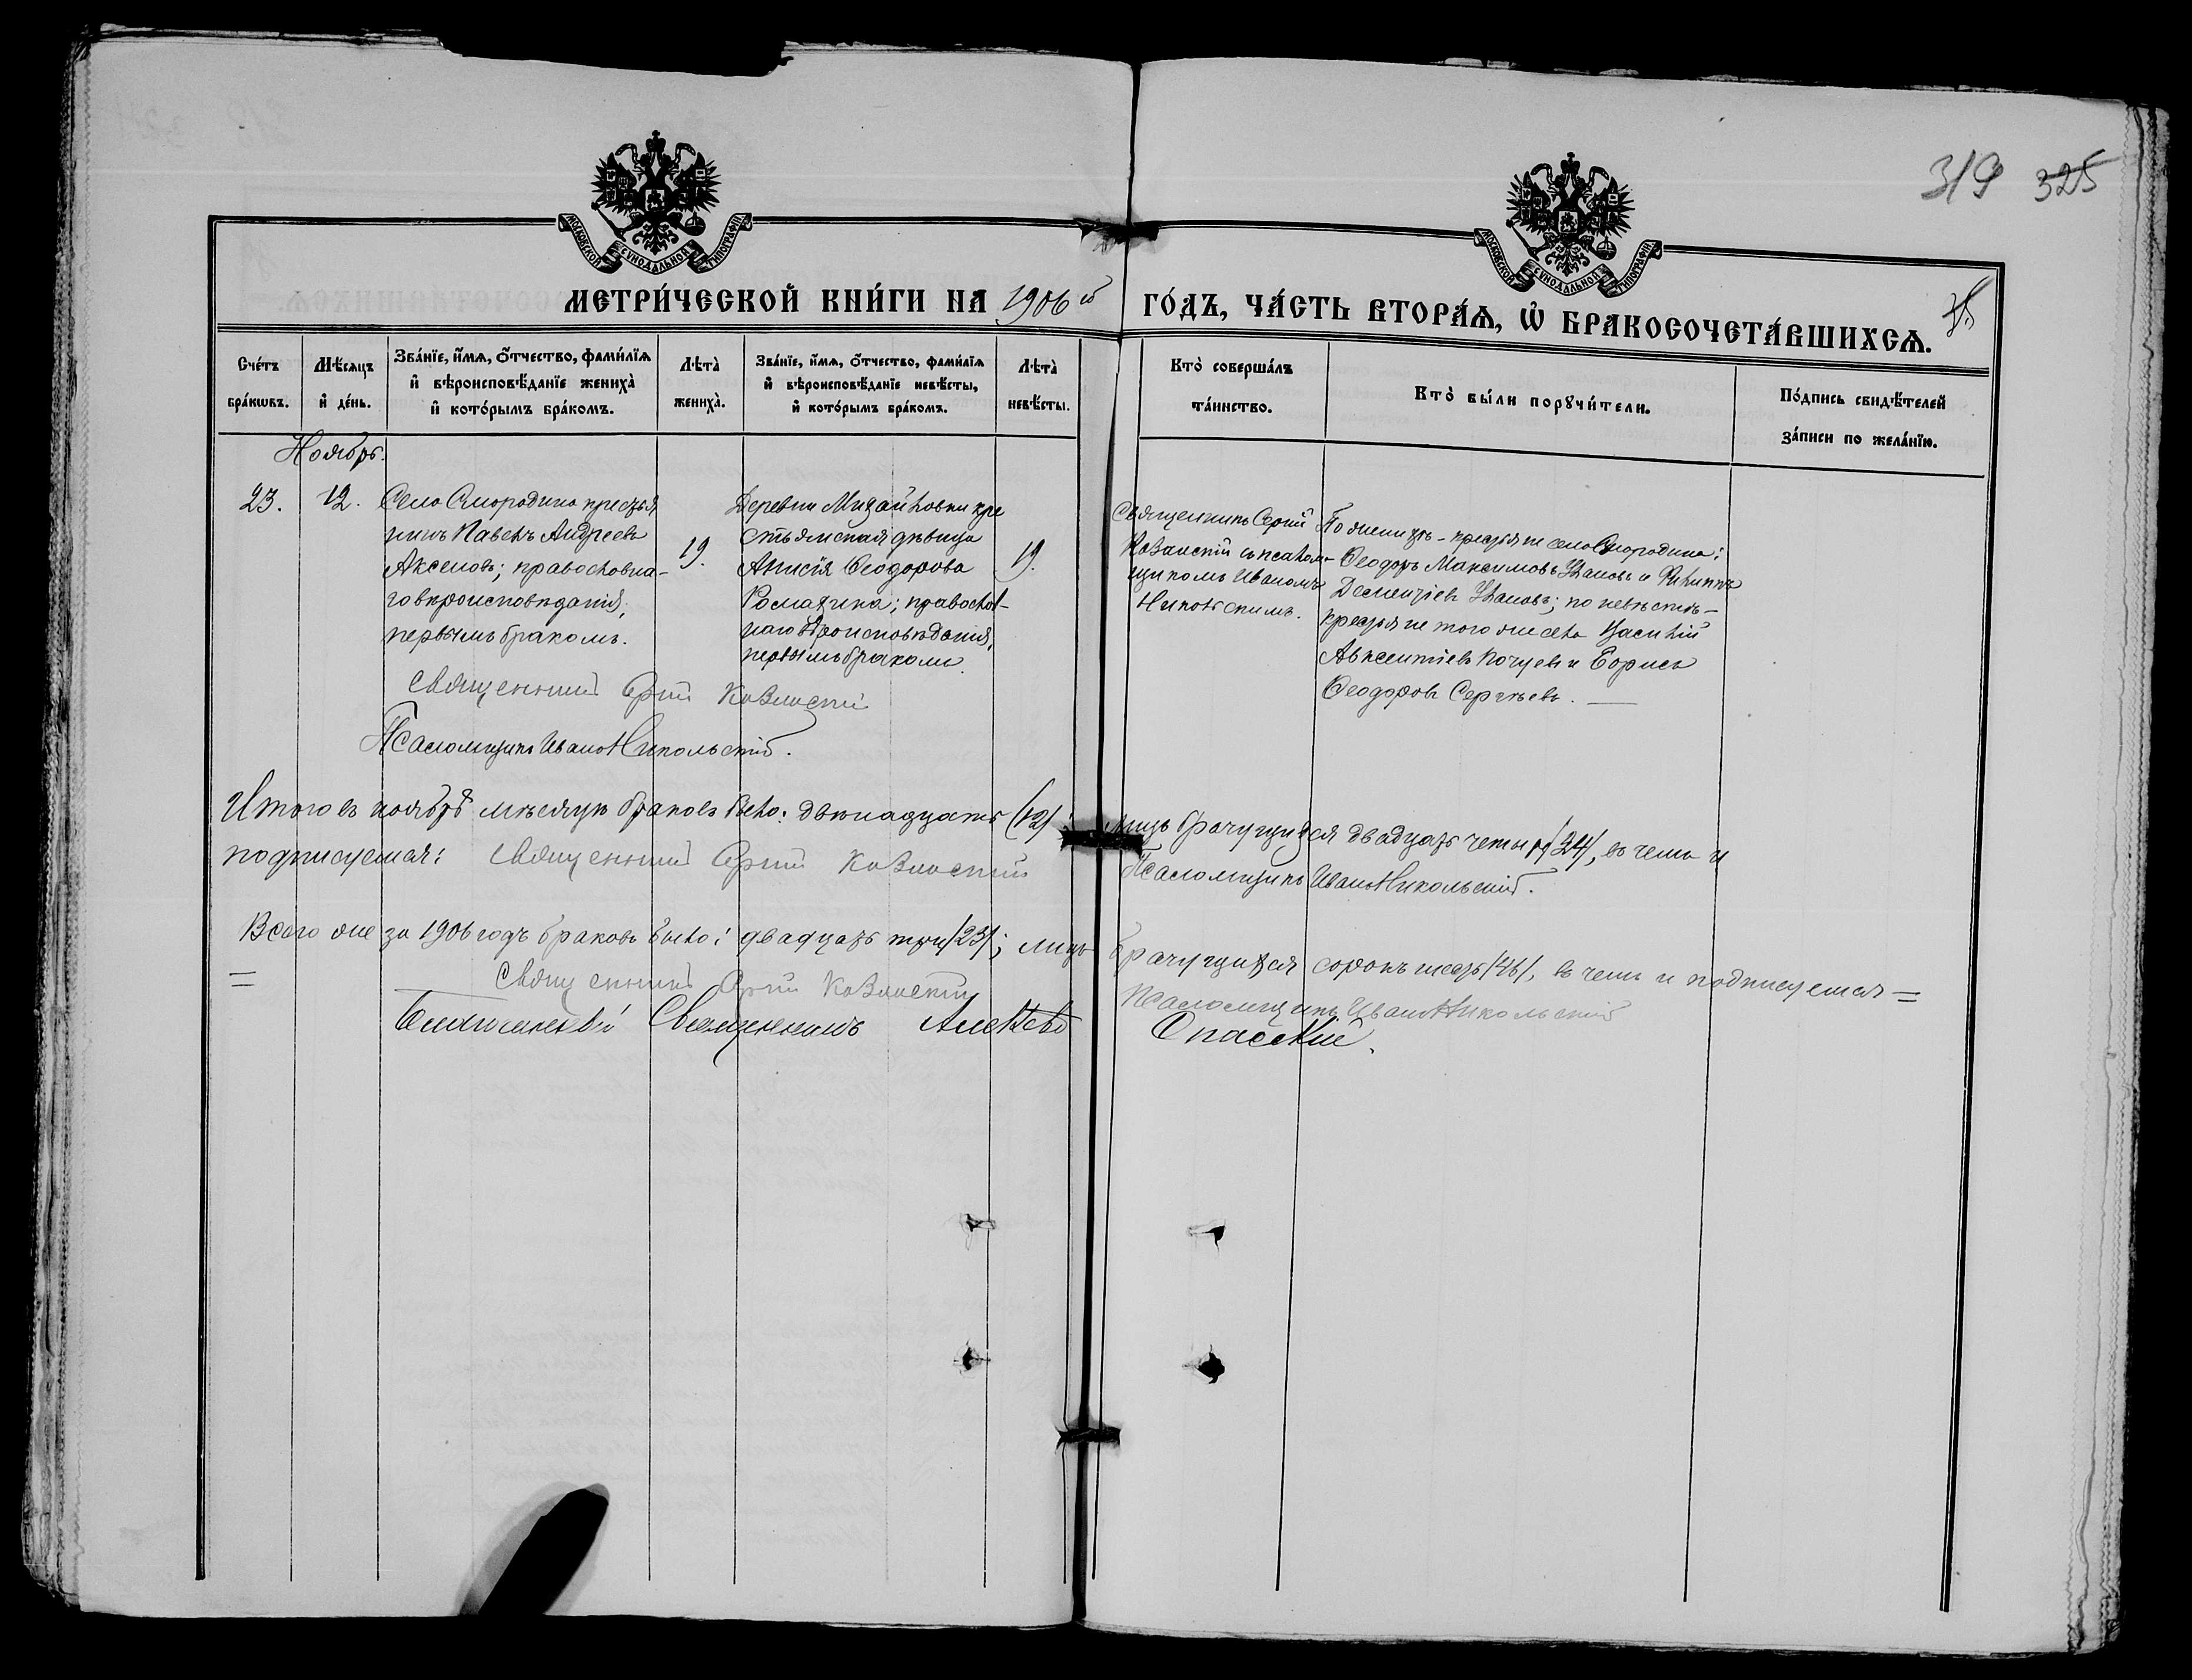 319 325
МОСКОВСКОЙ СѴНОДАЛЬНОЙ ТИПОГРАФІИ
МОСКОВСКОЙ СѴНОДАЛЬНОЙ ТИПОГРАФІИ
МЕТРИ́ЧЕСКОЙ КНИ́ГИ НА 1906 й ГО́ДЪ, ЧА́СТЬ ВТОРА́Ѧ, Ѡ҆ БРАКОСОЧЕТА́ВШИХСѦ.
Сче́тъ бра́кѡвъ.
Мѣ́сѧцъ и҆ де́нь.
Зва́нїе, и҆́мѧ, ѻ҆́тчество, фами́лїѧ
и҆ вѣроисповѣ́данїе жениха̀
и҆ кото́рымъ бра́комъ.
Лѣта̀ жениха̀.
Зва́нїе, и҆́мѧ, ѻ҆́тчество, фами́лїѧ
и҆ вѣроисповѣ́данїе невѣ́сты,
и҆ кото́рымъ бра́комъ.
Лѣта̀ невѣ́сты.
Кто̀ соверша́лъ
та́инство.
Кто̀ бы́ли порꙋчи́тели.
По́дпись свидѣ́телей
за́писи по жела́нїю.
Ноябрь.
23.
12.
Села Смородина крестья
нинъ Павелъ Андреевъ
Аксеновъ; православна-
го вѣроисповѣданія,
первымъ бракомъ.
19.
Деревни Михайловки кре
стьянская дѣвица
Анисія Ѳеодорова
Ромахина; православ-
наго вѣроисповѣданія,
первымъ бракомъ
19.
Священникъ Сергій
Казанскій съ псалом-
щикомъ Иваномъ
Никольскимъ.
По женихѣ - крестьяне села Смородина:
Ѳеодоръ Максимовъ Ивановъ и Филиппъ
Дементіевъ Ивановъ; по невѣстѣ -
крестьяне того же села Василій
Авксентіевъ Кочуевъ и Борисъ
Ѳеодоровъ Сергѣевъ.
Священникъ Сергій Казанскій
Псаломщикъ Иванъ Никольскій.
Итого въ ноябрѣ мѣсяцѣ браковъ было: двѣнадцать (12); лицъ брачущихся двадцать четыре /24/, въ чемъ и
подписуемся: Священникъ Сергій Казанскій Псаломщикъ Иванъ Никольскій.
Всего же за 1906 годъ браковъ было: двадцать три /23/; лицъ брачущихся сорокъ шесть /46/, въ чемъ и подписуемся =
= Священникъ Сергій Казанскій Псаломщикъ Иванъ Никольскій
Священникъ Алексѣй Спасскій.